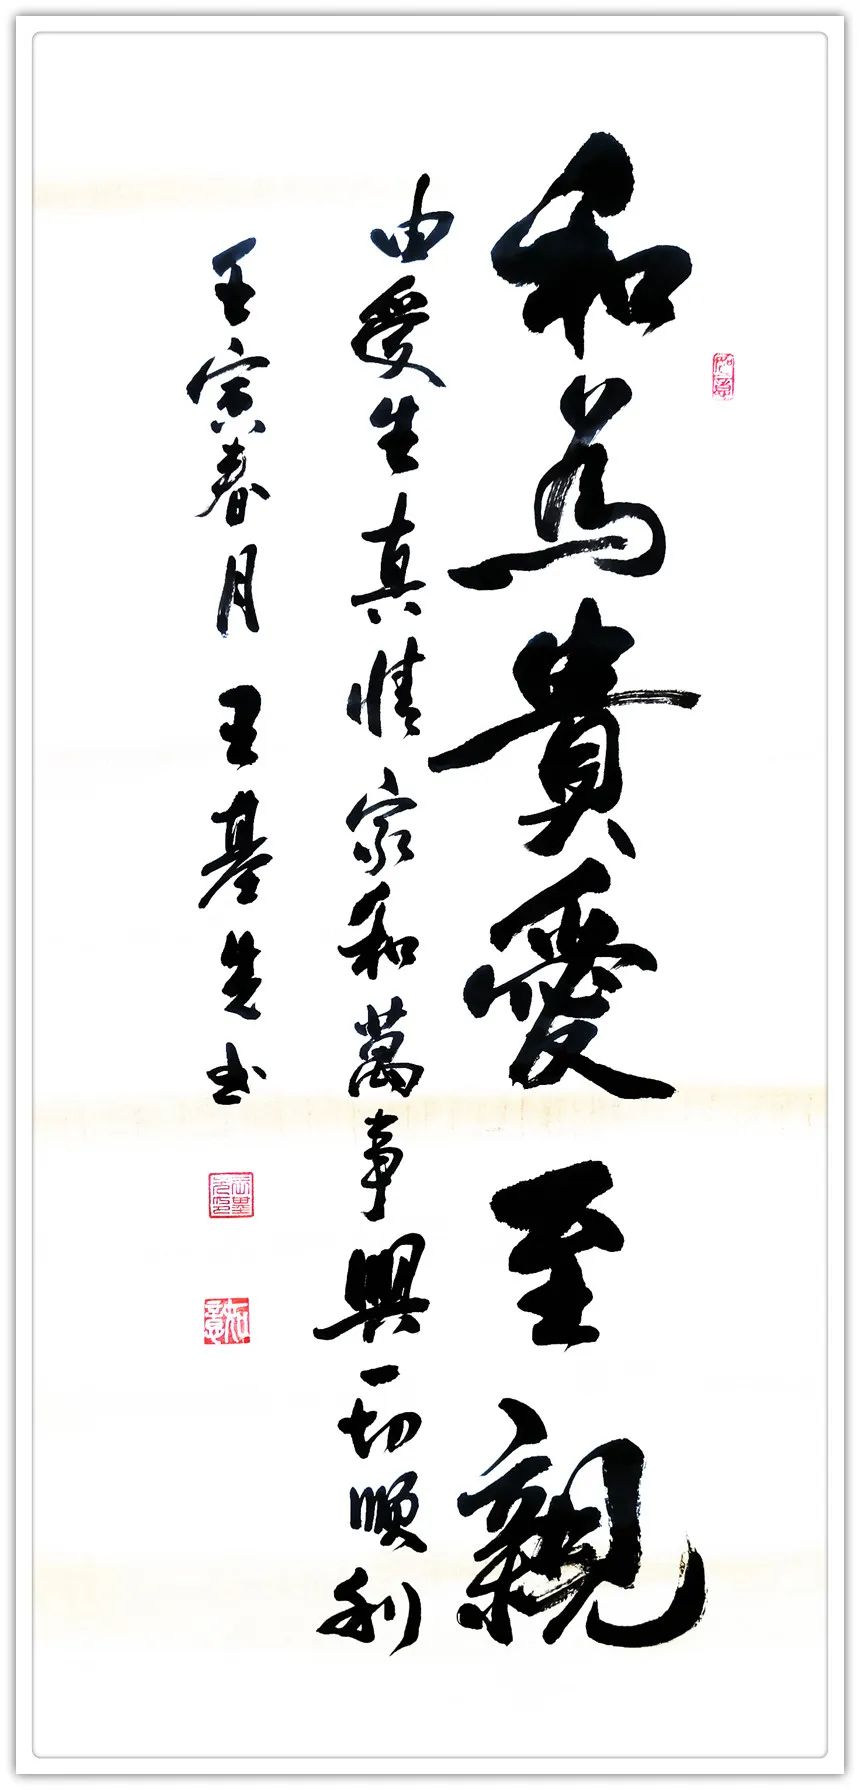 和為貴愛至親
由愛生真情家和萬事興一切順利
壬寅春月王基生书
如意